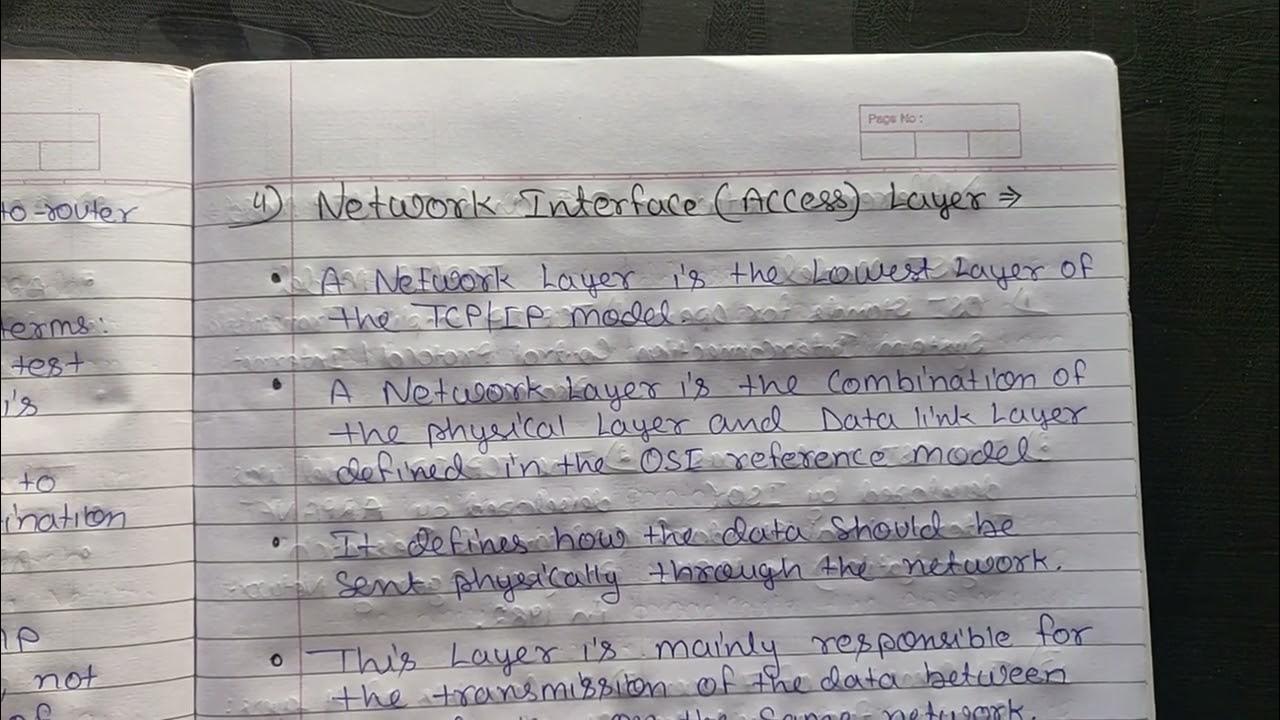 to-router
terms:
test
is
to
ination
IP
not
of
Page No :
4) Network Interface (Access) Layer ⇒
• A Network Layer is the Lowest Layer of
the TCP/IP model.
• A Network Layer is the combination of
the physical Layer and Data link Layer
defined in the OSI reference model.
• It defines how the data should be
sent physically through the network.
• This Layer is mainly responsible for
the transmission of the data between
on the same network.